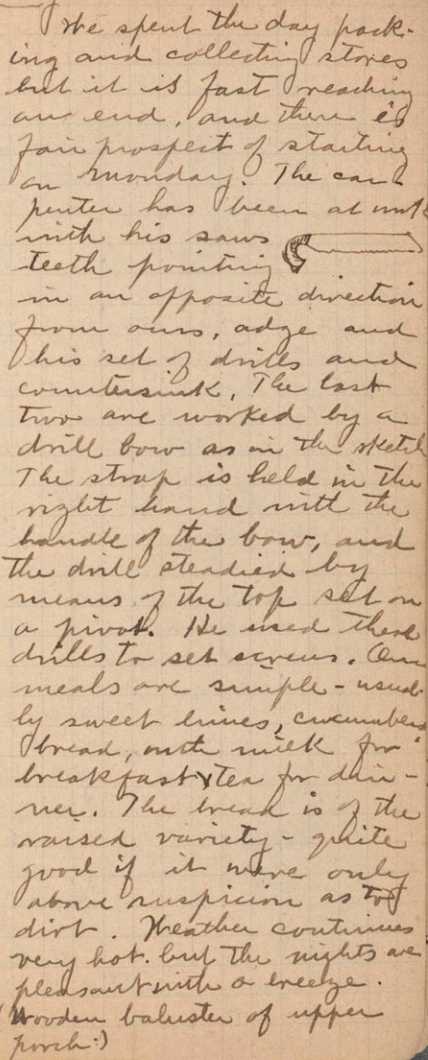 We spent the day pack-
ing and collecting stores
but it is fast reaching
an end, and there is
fair prospect of starting
on Monday. The car-
penter has been at work
with his saws
teeth pointing
in an opposite direction
from ours, adge and
his set of drills and
countersink. The last
two are worked by a
drill bow as in the sketch
The strap is held in the
right hand with the
handle of the bow, and
the drill steadied by
means of the top set on
a pivot. He used these
drills to set screws. Our
meals are simple - usual-
ly sweet limes, cucumbers
bread, with milk for
breakfast & tea for din-
ner. The bread is of the
raised variety - quite
good if it were only
above suspicion as to
dirt. Weather continues
very hot. but the nights are
pleasant with a breeze.
(Wooden baluster of upper
porch:)